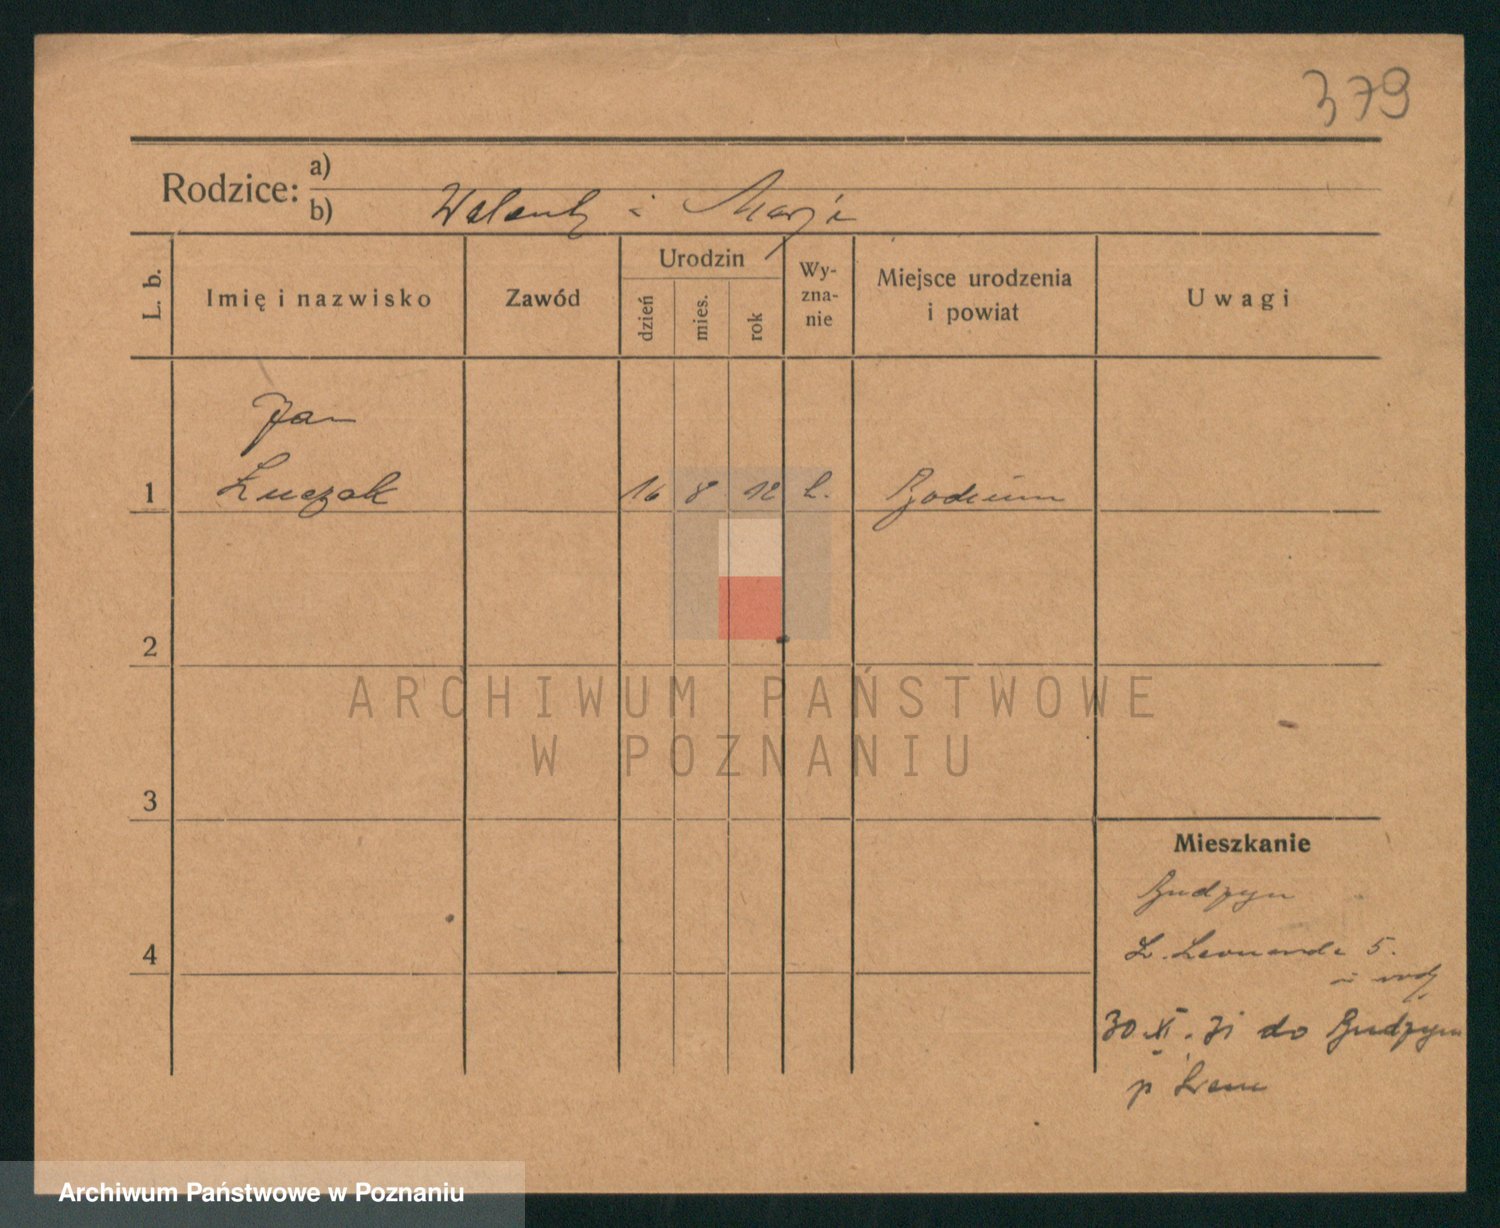 379
Rodzice: a)
b) Walenty i Marja
L. b.
Imię i nazwisko
Zawód
Urodzin
dzień
mies.
rok
Wy-
zna-
nie
Miejsce urodzenia
i powiat
Uwagi
Jan
1 Łuczak 16 8 12
2
3
4
Mieszkanie
Budzyn
5.
30 XI. 31 do Budzyn
p
ARCHIWUM PAŃSTWOWE
W POZNANIU
Archiwum Państwowe w Poznaniu